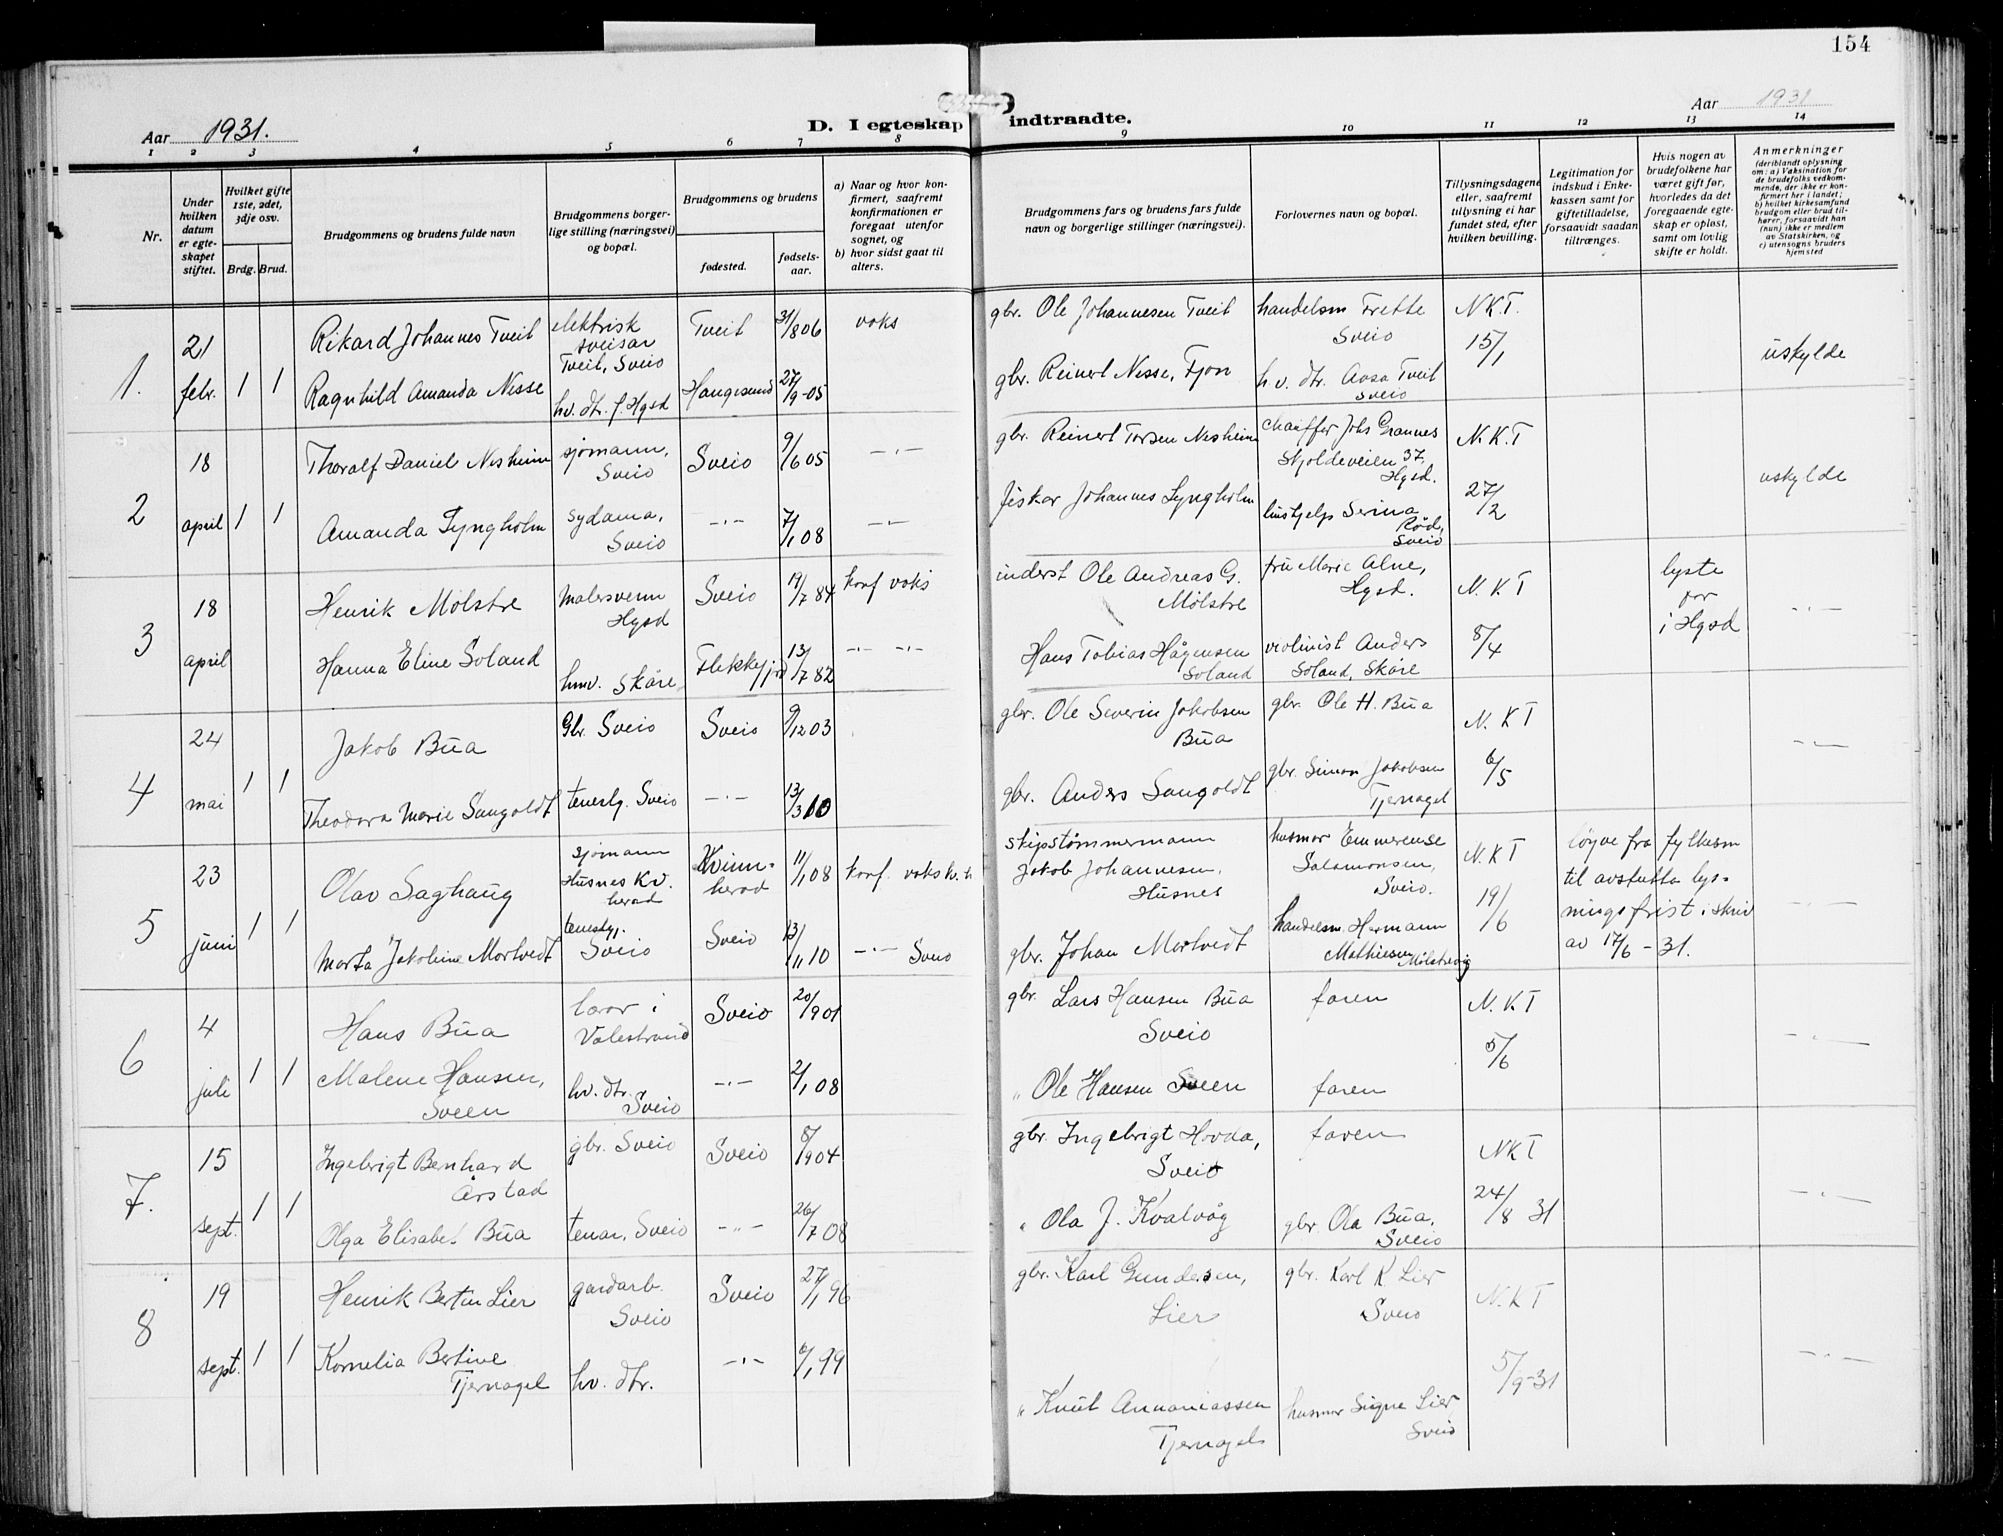 154
Aar 1931.
D. I egteskap indtraadte.
Aar 1931
1 2 3 4 5 6 7 8 9 10 11 12 13 14
Nr.
Under hvilken datum er egteskapet stiftet.
Hvilket gifte 1ste, 2det, 3dje osv.
Brdg. Brud.
Brudgommens og brudens fulde navn
Brudgommens borgerlige stilling (næringsvei) og bopæl.
Brudgommens og brudens
fødested.
fødselsaar.
a) Naar og hvor konfirmert, saafremt konfirmationen er foregaat utenfor sognet, og
b) hvor sidst gaat til alters.
Brudgommens fars og brudens fars fulde navn og borgerlige stillinger (næringsvei).
Forlovernes navn og bopæl.
Tillysningsdagene eller, saafremt tillysning ei har fundet sted, efter hvilken bevilling.
Legitimation for indskud i Enkekassen samt for giftetilladelse, forsaavidt saadan tiltrænges.
Hvis nogen av brudefolkene har været gift før, hvorledes da det foregaaende egteskap er opløst, samt om lovlig skifte er holdt.
Anmerkninger
(deriblandt oplysning om: a) Vaksination for de brudefolks vedkommende, der ikke er konfirmert her i landet; b) hvilket kirkesamfund brudgom eller brud tilhører, forsaavidt han (hun) ikke er medlem av Statskirken, og c) utensogns bruders hjemsted
1.
21 febr. 1 1
Rikard Johannes Tveit
elektrisk sveisar Tveit, Sveio
Tveit
31/8 06
voks
gbr. Ole Johannesen Tveit
handelsm Frette Sveio
N.K.T.
15/1
uskylde
Ragnhild Amanda Nesse
hv. dtr. f. Hgsd
Haugesund
27/9-05
gbr. Reinert Nesse, Fjon
h v. dtr. Aasa Tveit Sveio
2
18 april 1 1
Thoralf Daniel Nesheim
sjømann, Sveio
Sveio
9/6 05
-"-
gbr. Reinert Torsen Nesheim
chauffør Johs Grannes Skjoldeveien 37, Hgsd.
N.K.T
27/2
uskylde
Amanda Lyngholm
sydama, Sveio
-"-
7/1 08
-"-
fiskar Johannes Lyngholm
hushjelp Serina Rød, Sveio
3
18 april
Henrik Mølstre
Malersvenn Hgsd
Sveio
19/7 84
konf voks
inderst Ole Andreas G. Mølstre
fru Marie Alne, Hgsd.
N.K T
8/4
lyste for i Hgsd
-"-
Hanna Eline Soland
husv. Skåre
Flekkefjord
13/7 82
-"- -"-
Hans Tobias Hågensen Soland
violinist Anders Soland, Skåre
4
24 mai 1 1
Jakob Bua
Gbr. Sveio
Sveio
9/12 03
gbr. Ole Severin Jakobsen Bua
gbr. Ole H. Bua
N. K T
6/5
-"-
Theodora Marie Sangoldt
tenestg. Sveio
-"-
13/3 10
gbr. Anders Sangoldt
gbr. Simon Jakobsen Tjernagel
5
23 juni 1 1
Olav Saghaug
sjømann Husnes Kv. herad
Kvinnherad
11/1 08
konf. voks
skipstømmermann Jakob Johannesen, Husnes
husmor Emmerense Salamonsen, Sveio.
N.K T
19/6
løyve frå fylkesm til avstutta lysningsfrist i skriv av 17/6 - 31.
-"-
Marta Jakobine Mortvedt
tenestgj. Sveio
Sveio
13/11 10
-"- Sveio
gbr. Johan Mortvedt
handelsm. Hermann Mathiesen Mølstrevåg
6
4 juli 1 1
Hans Bua
lærar i Valestrand
Sveio
20/9 01
gbr. Lars Hansen Bua Sveio
faren
N. K T
5/6
-"-
Malene Hansen, Sveen
hv. dtr. Sveio
-"-
2/1 08
" Ole Hansen Sveen
faren
7.
15 sept. 1 1
Ingebrigt Bernhard Årstad
gbr. Sveio
Sveio
8/9 04
gbr. Ingebrigt Hovda, Sveio
faren
NKT
24/8 31
-"-
Olga Elisabet Bua
tenar, Sveio
-"-
26/7 08
" Ola J. Kvalvåg
gbr. Ola Bua, Sveio
8
19 sept. 1 1
Henrik Bertin Lier
gardarb. Sveio
Sveio
27/1 96
gbr. Karl Gundersen, Lier
gbr. Karl K Lier Sveio
N.K T
5/9-31
-"-
Kornelia Bertine Tjernagel
hv. dtr.
-"-
6/1 99
" Knut Annaniassen Tjernagel
husmor Signe Lier Sveio